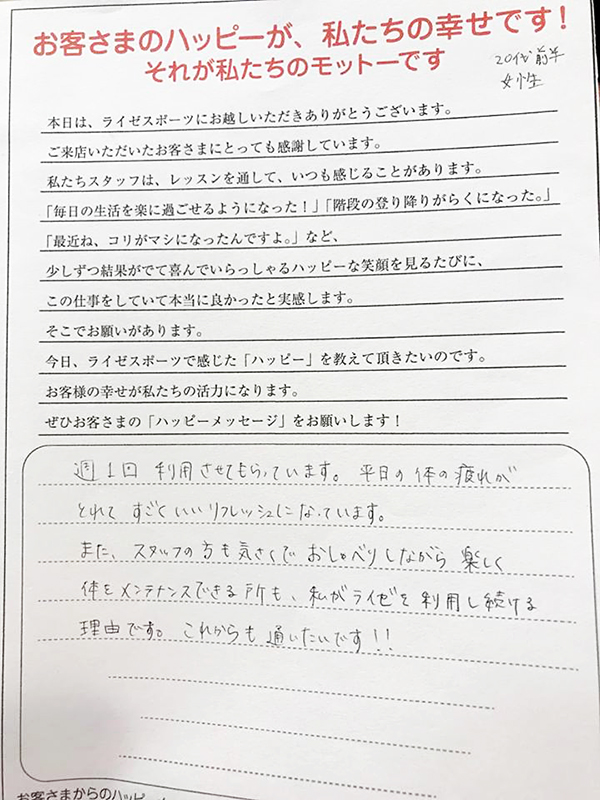 お客さまのハッピーが、私たちの幸せです!
それが私たちのモットーです
20代前半
女性
本日は、ライゼスポーツにお越しいただきありがとうございます。
ご来店いただいたお客さまにとっても感謝しています。
私たちスタッフは、レッスンを通して、いつも感じることがあります。
「毎日の生活を楽に過ごせるようになった!」「階段の登り降りがらくになった。」
「最近ね、コリがマシになったんですよ。」など、
少しずつ結果がでて喜んでいらっしゃるハッピーな笑顔を見るたびに、
この仕事をしていて本当に良かったと実感します。
そこでお願いがあります。
今日、ライゼスポーツで感じた「ハッピー」を教えて頂きたいのです。
お客様の幸せが私たちの活力になります。
ぜひお客さまの「ハッピーメッセージ」をお願いします!
週1回 利用させてもらっています。平日の体の疲れが
とれて すごくいいリフレッシュになっています。
また、スタッフの方も気さくで おしゃべりしながら 楽しく
体をメンテナンスできる所も、私がライゼを利用し続ける
理由です。これからも通いたいです!!
お客さまからのハッピ